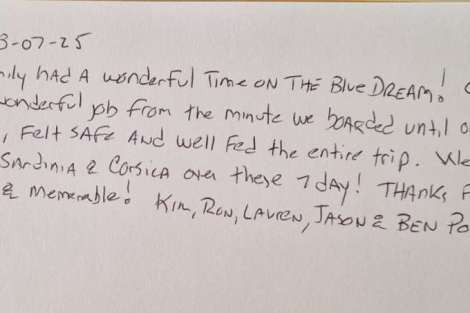 3-07-25
mily had a wonderful Time on The Blue Dream!
wonderful job from the minute we boarded until
, Felt safe and well fed the entire trip. We
Sardinia & Corsica over these 7 day! Thanks F
& memerable! Kim, Ron, Lauren, Jason & Ben Po